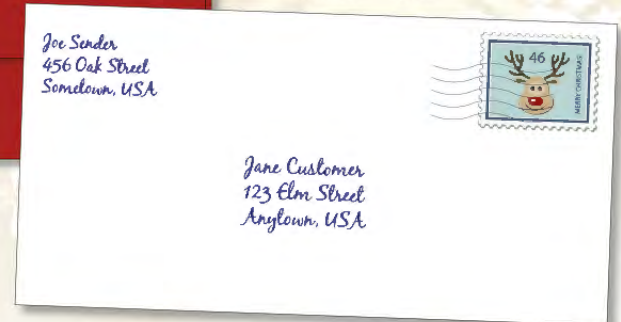 Joe Sender
456 Oak Street
Sometown, USA
46
MERRY CHRISTMAS
Jane Customer
123 Elm Street
Anytown, USA